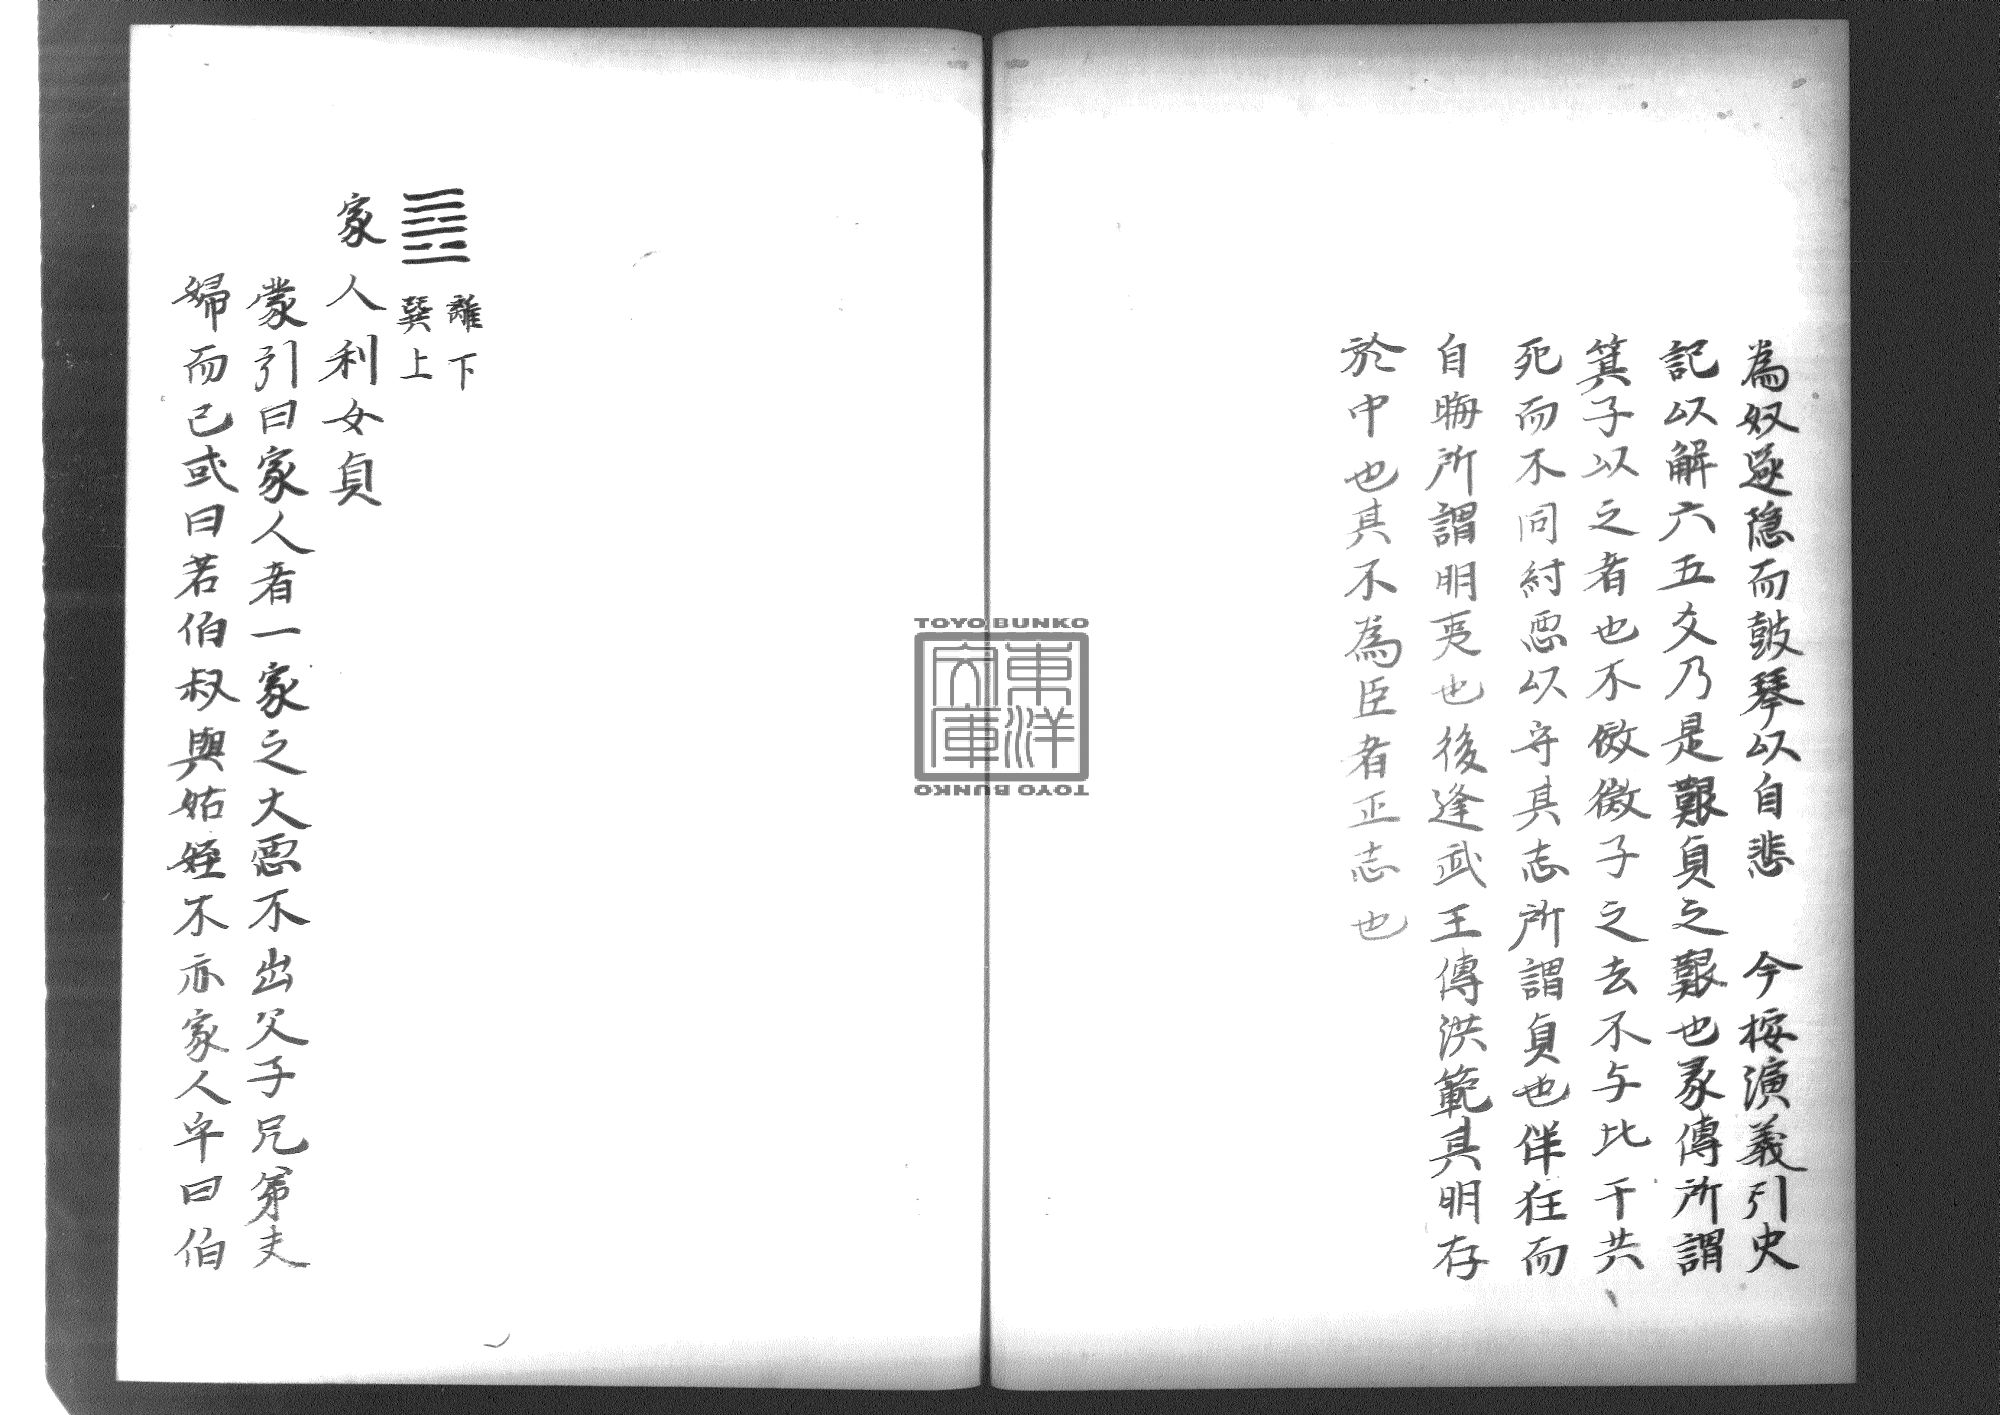 為奴遂隠而鼓琴以自悲　今按演義引史
記以解六五爻乃是艱貞之艱也彖傳所謂
箕子以之者也不倣微子之去不与比干共
死而不同紂悪以守其志所謂貞也佯狂而
自晦所謂明夷也後逢武王傳洪範其明存
於中也其不為臣者正志也
離下
巽上
家人利女貞
蒙引曰家人者一家之大悪不出父子兄弟夫
婦而已或曰若伯叔與姑姪不亦家人乎曰伯
TOYO BUNKO
東洋
文庫
TOYO BUNKO